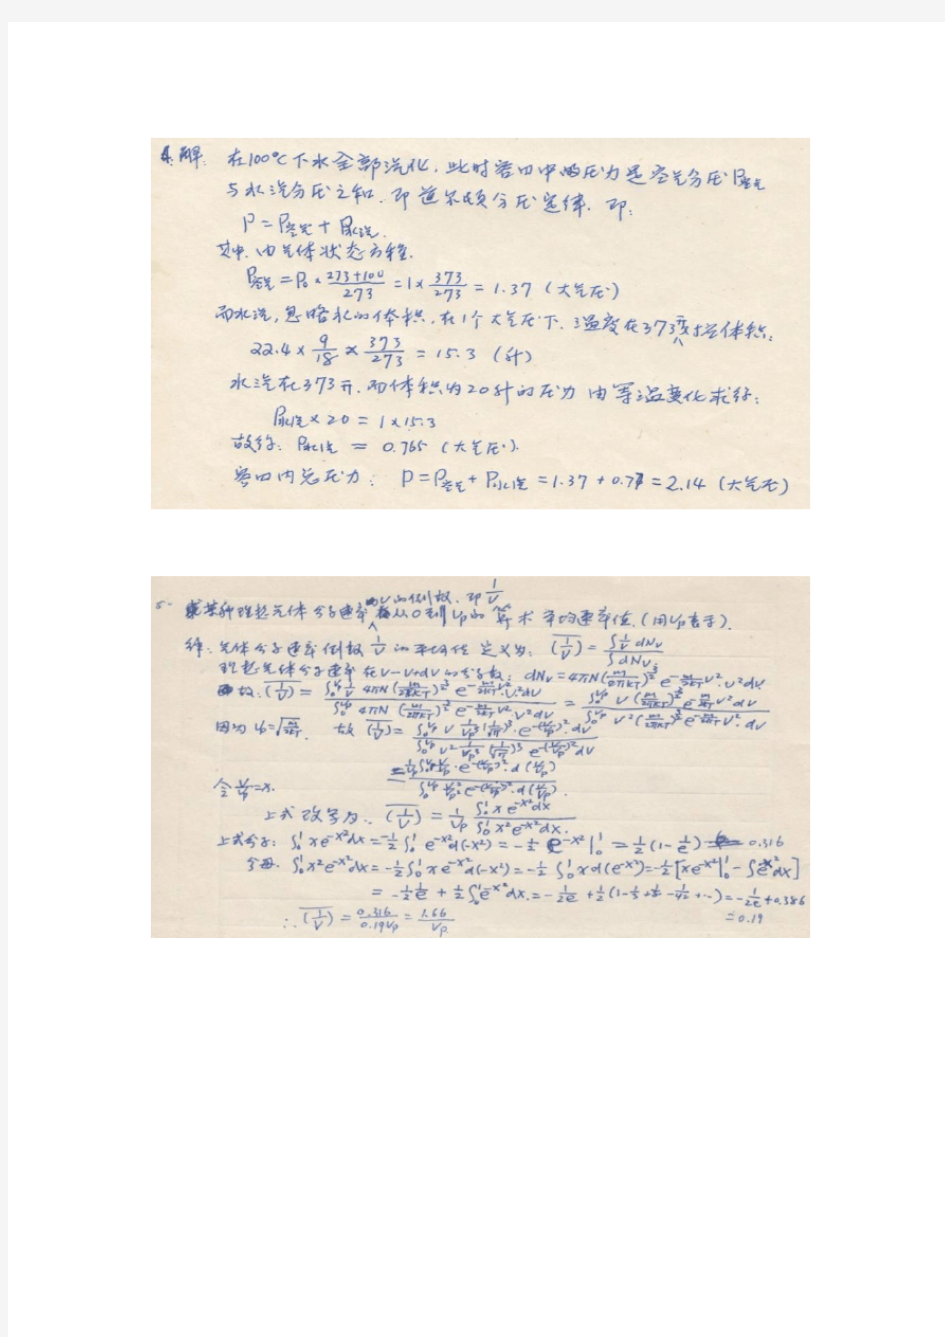 4. 解: 在100℃下水全部汽化, 此时容口中的压力是空气分压P空气
与水汽分压之和. 即道尔顿分压定律. 即:
P = P空气 + P水汽.
其中. 由气体状态方程.
P空气 = P₀ × (273+100)/273 = 1 × 373/273 = 1.37 (大气压)
而水汽, 忽略水的体积, 在1个大气压下. 温度在373度时占体积:
22.4 × 9/18 × 373/273 = 15.3 (升)
水汽在373开. 而体积为20升的压力 由等温变化求得:
P水汽 × 20 = 1×15.3
故得: P水汽 = 0.765 (大气压).
容口内总压力: P = P空气 + P水汽 = 1.37 + 0.77 = 2.14 (大气压)
5. 求某种理想气体分子速率v的倒数. 即 1/v 从0到Vp的算术平均速率值. (用Vp表示).
解: 气体分子速率倒数 1/v 的平均值 定义为: (1/v) = ∫1/v dNv / ∫dNv
理想气体分子速率在v–v+dv的分子数: dNv = 4πN(m/2πkT)^3/2 e^-m/2kT v² · v²dv
故: (1/v) = ∫₀^vp 1/v 4πN(m/2πkT)^3/2 e^-m/2kT v² · v²dv / ∫₀^vp 4πN(m/2πkT)^3/2 e^-m/2kT v² · v²dv = ∫₀^vp v(m/2πkT)^3/2 e^-m/2kT v² dv / ∫₀^vp v²(m/2πkT)^3/2 e^-m/2kT v² · dv
因为 故 (1/v) = ∫₀^vp v 1/vp³ (1/√π)³ · e^-(v/vp)² · dv / ∫₀^vp v² 1/vp³ (1/√π)³ e^-(v/vp)² dv
= 1/vp ∫₀^vp v/vp · e^-(v/vp)² · d(v/vp) / ∫₀^vp v²/vp² e^-(v/vp)² · d(v/vp).
令 v/vp = x.
上式改写为: (1/v) = 1/vp ∫₀¹ x e^-x² dx / ∫₀¹ x² e^-x² dx.
上式分子: ∫₀¹ x e^-x² dx = -1/2 ∫₀¹ e^-x² d(-x²) = -1/2 e^-x² |₀¹ = 1/2 (1 - 1/e) = 0.316
分母. ∫₀¹ x² e^-x² dx = -1/2 ∫₀¹ x e^-x² d(-x²) = -1/2 ∫₀¹ x d(e^-x²) = -1/2 [x e^-x² |₀¹ - ∫e^-x² dx]
= -1/2 1/e + 1/2 ∫₀¹ e^-x² dx. = -1/2e + 1/2 (1 - 1/3 + - 1/42 + …) = -1/2e + 0.386
= 0.19
∴ (1/v) = 0.316/0.19Vp = 1.66/Vp